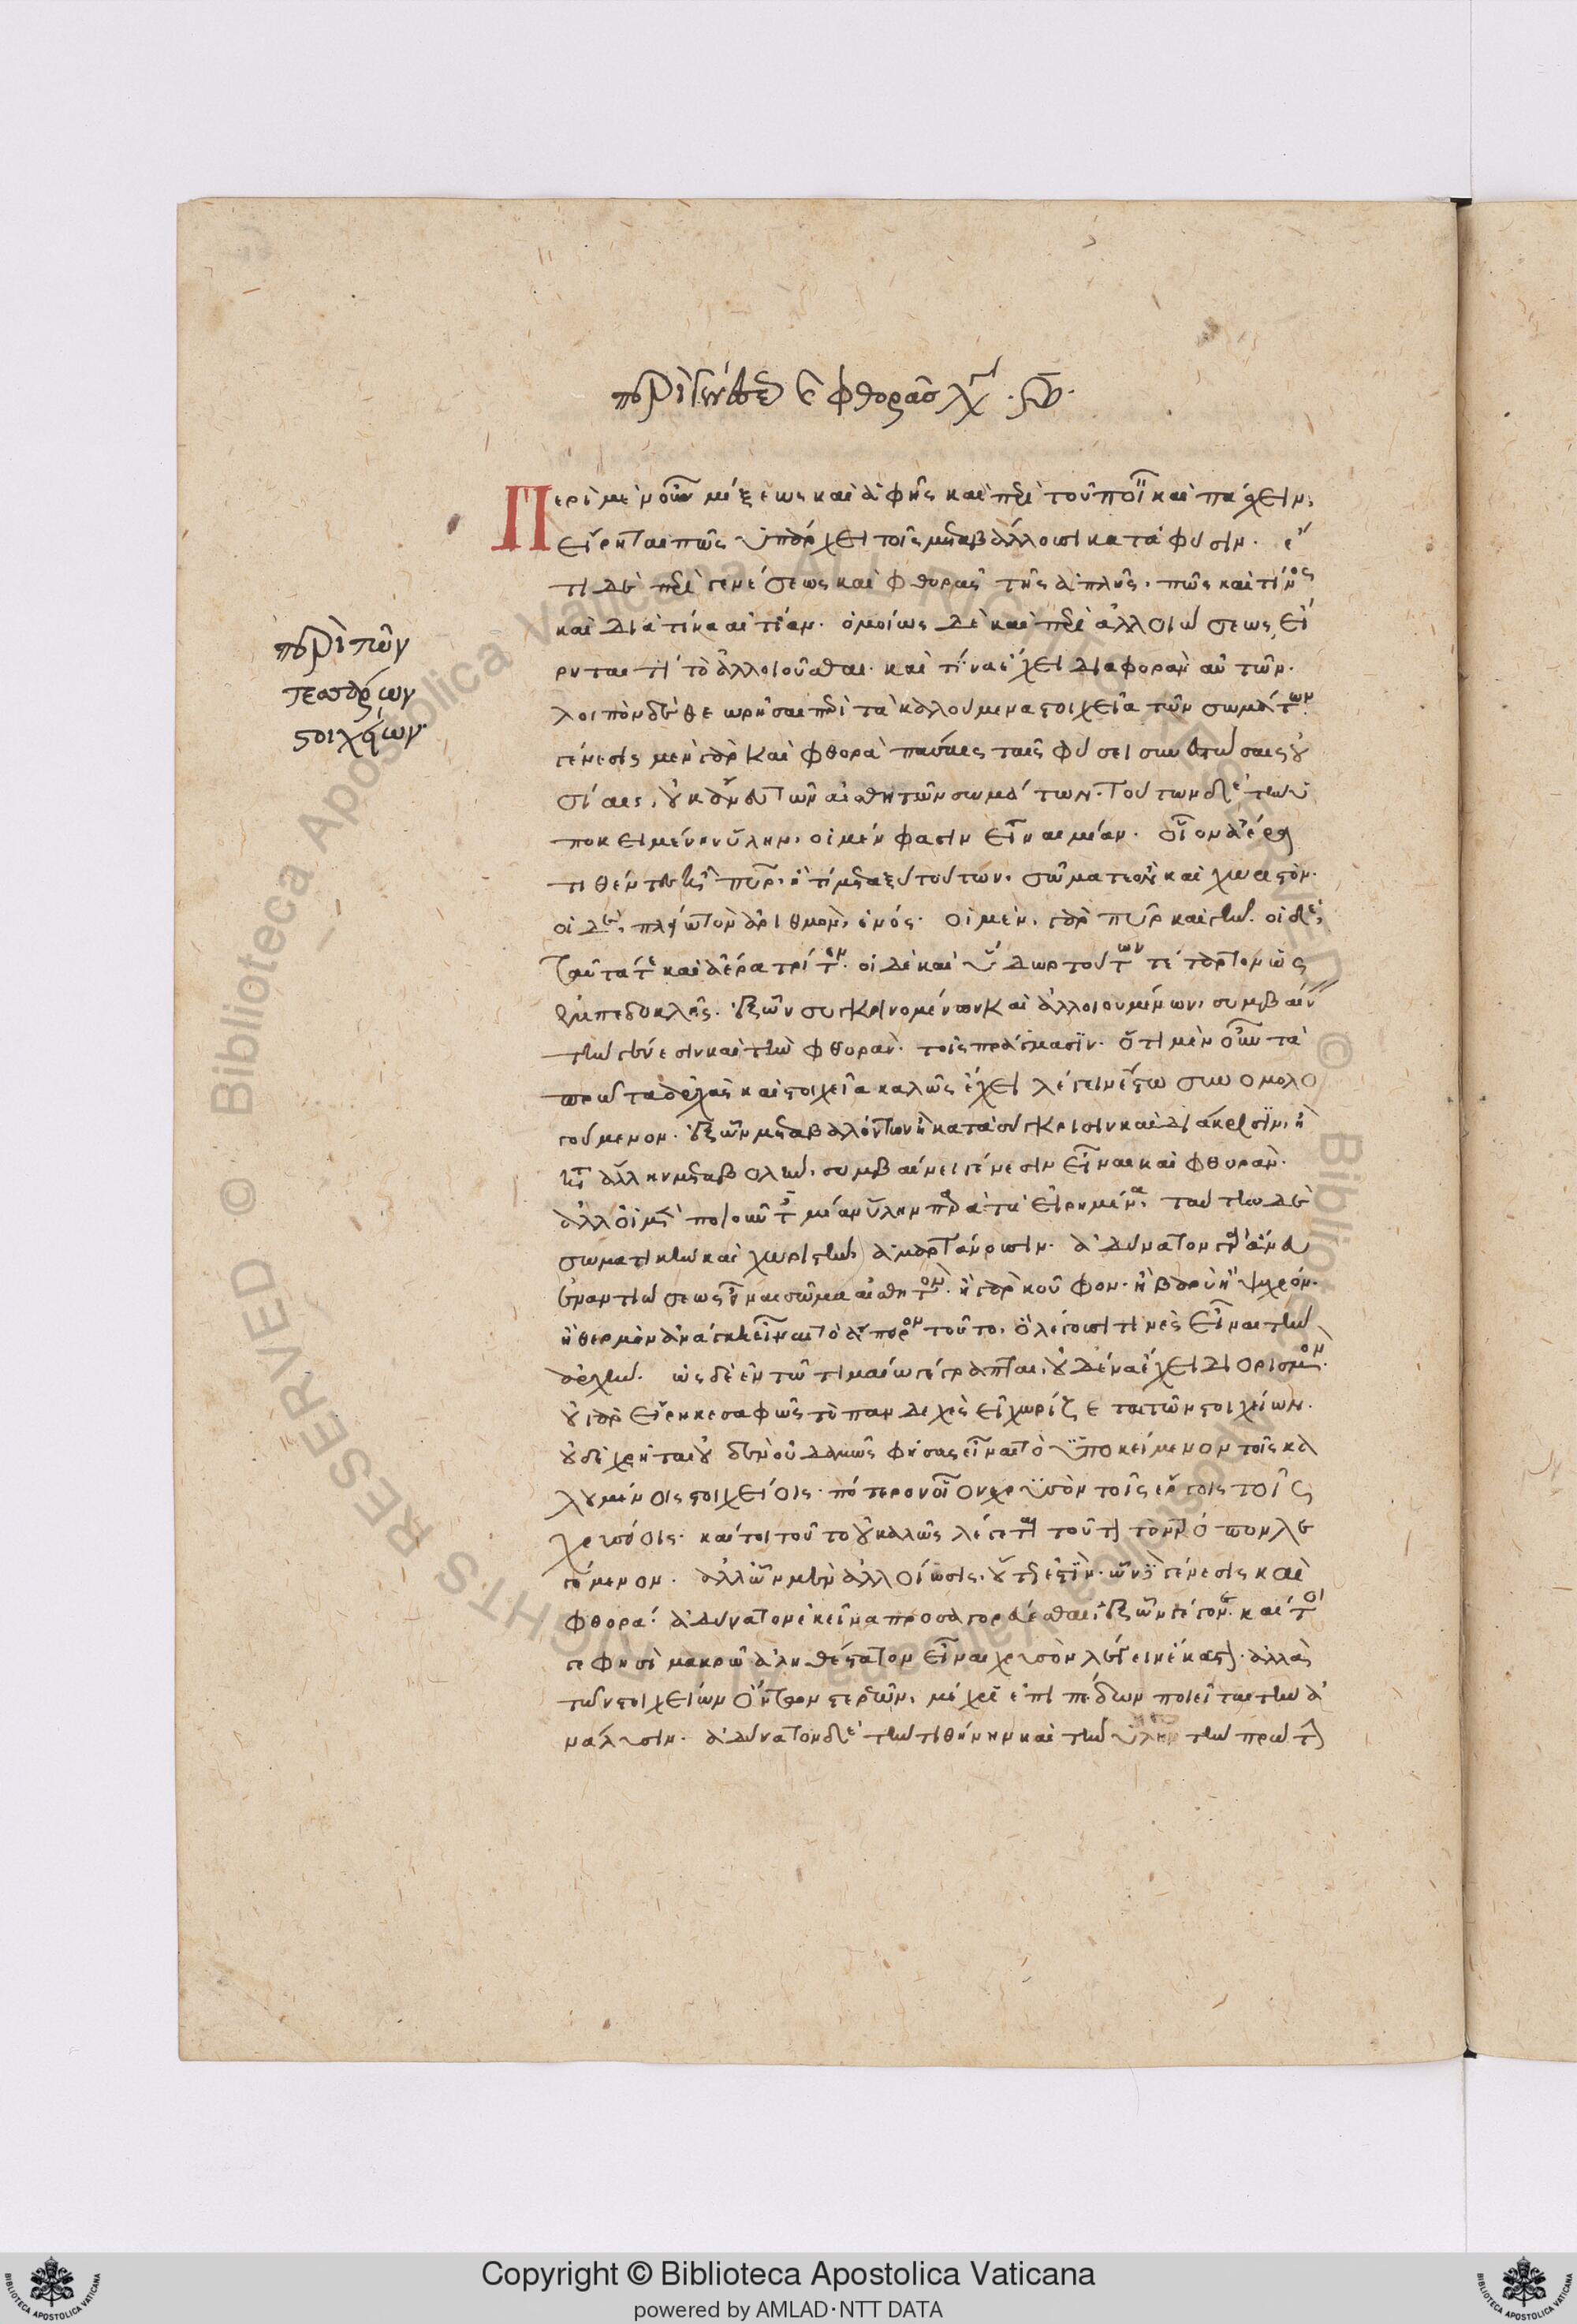 περὶ γενέσεως καὶ φθορᾶς
Περὶ μὲν οὖν μίξεως καὶ ἁφῆς καὶ περὶ τοῦ ποιεῖν καὶ πάσχειν,
εἴρηται πῶς ὑπάρχει τοῖς μεταβάλλουσι κατὰ φύσιν. ἔ
τι δὲ περὶ γενέσεως καὶ φθορᾶς τῆς ἁπλῆς, πῶς καὶ τίνος
καὶ διὰ τίνα αἰτίαν. ὁμοίως δὲ καὶ περὶ ἀλλοιώσεως εἴ
ρηται τί τὸ ἀλλοιοῦσθαι. καὶ τίνα ἔχει διαφορὰν αὐτῶν.
περὶ τῶν
τεσσάρων
στοιχείων
λοιπὸν δὲ θεωρῆσαι περὶ τὰ καλούμενα στοιχεῖα τῶν σωμάτων.
γένεσις μὲν γὰρ καὶ φθορὰ πάσαις ταῖς φύσει συνεστώσαις οὐ
σίαις, οὐκ ἄνευ τῶν αἰσθητῶν σωμάτων. τούτων δὲ τὴν ὑ
ποκειμένην ὕλην, οἱ μέν φασιν εἶναι μίαν. οἷον ἀέρα
τιθέντες ἢ πῦρ, ἤ τι μεταξὺ τούτων, σῶμά τε ὂν καὶ χωριστόν.
οἱ δὲ, πλείω τὸν ἀριθμὸν, ἑνός. οἱ μὲν, γὰρ πῦρ καὶ γῆν. οἱ δὲ,
ταῦτά τε καὶ ἀέρα τρίτον. οἱ δὲ καὶ ὕδωρ τούτων τέταρτον ὡς
ἐμπεδοκλῆς. ἐξ ὧν συγκρινομένων καὶ ἀλλοιουμένων, συμβαίνειν
τὴν γένεσιν καὶ τὴν φθορὰν τοῖς πράγμασιν. ὅτι μὲν οὖν τὰ
πρῶτα ἀρχὰς καὶ στοιχεῖα καλῶς ἔχει λέγειν ἔστω συνομολο
γούμενον. ἐξ ὧν μεταβαλόντων ἢ κατὰ σύγκρισιν καὶ διάκρισιν, ἢ
κατ' ἄλλην μεταβολὴν, συμβαίνει γένεσιν εἶναι καὶ φθοράν.
ἀλλ' οἱ μὲν ποιοῦντες μίαν ὕλην παρὰ τὰ εἰρημένα, ταύτην δὲ
σωματικὴν καὶ χωριστὴν ἁμαρτάνουσιν. ἀδύνατον γὰρ ἄνευ
ἐναντιώσεως εἶναι σῶμα αἰσθητόν. ἢ γὰρ κοῦφον. ἢ βαρὺ ἢ ψυχρόν.
ἢ θερμὸν ἀνάγκη εἶναι τὸ ἄπειρον τοῦτο, ὃ λέγουσί τινες εἶναι τὴν
ἀρχήν. ὡς δὲ ἐν τῷ τιμαίῳ γέγραπται, οὐδένα ἔχει διορισμόν.
οὐ γὰρ εἴρηκε σαφῶς τὸ πανδεχὲς εἰ χωρίζεται τῶν στοιχείων.
οὐδὲ χρῆται οὐδὲν οὐδαμῶς φήσας εἶναι τὸ ὑποκείμενον τοῖς κα
λουμένοις στοιχείοις. πρότερον οἷον χρυσὸν τοῖς ἔργοις τοῖς
χρυσοῖς. καίτοι τοῦτο οὐ καλῶς λέγεται τοῦτον τὸν τρόπον λε
γόμενον. ἀλλ' ὧν μὲν ἀλλοίωσις, οὕτως ἐστὶν. ὧν δὲ γένεσις καὶ
φθορά. ἀδύνατον ἐκεῖνα προσαγορεύεσθαι ἐξ ὧν γέγονε. καίτοι
γε φησὶ μακρῷ ἀληθέστατον εἶναι χρυσὸν λέγειν ἕκαστον. ἀλλὰ
τῶν στοιχείων ὄντων στερεῶν, μέχρι ἐπιπέδων ποιεῖται τὴν ἀ
νάλυσιν. ἀδύνατον δὲ τὴν τιθήνην καὶ τὴν ὕλην τὴν πρώτην
Copyright © Biblioteca Apostolica Vaticana
powered by AMLAD·NTT DATA